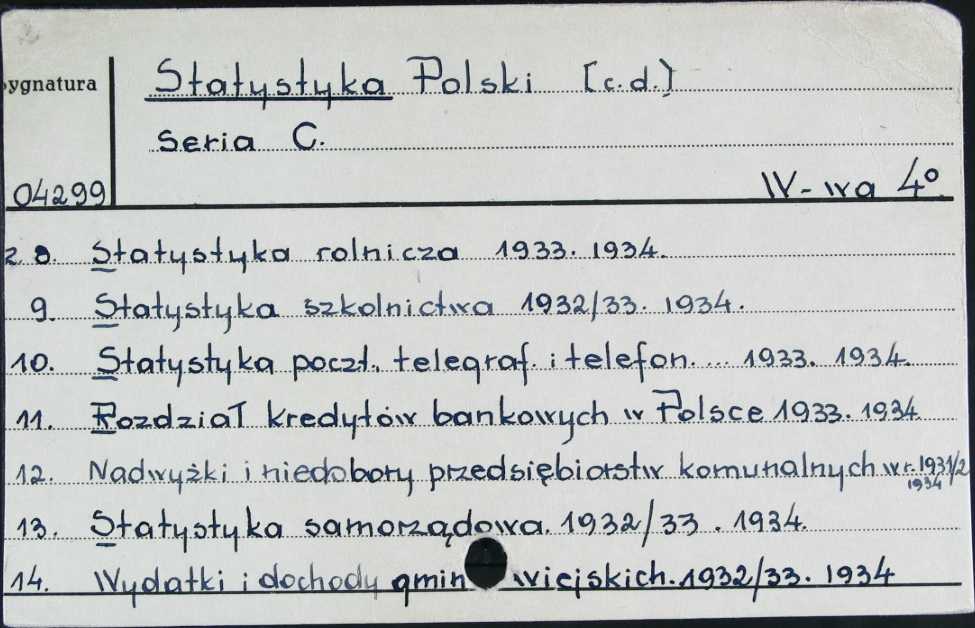 Statystyka Polski [c.d.]
ygnatura
Seria C.
04299
W-wa 4°
z 8. Statystyka rolnicza 1933. 1934.
9. Statystyka szkolnictwa 1932/33. 1934.
10. Statystyka poczt., telegraf. i telefon.... 1933. 1934.
11. Rozdział kredytów bankowych w Polsce 1933. 1934
12. Nadwyżki i niedobory przedsiębiorstw komunalnych w r. 1931/2
1934
13. Statystyka samorządowa. 1932/33. 1934.
14. Wydatki i dochody gmin wiejskich. 1932/33. 1934